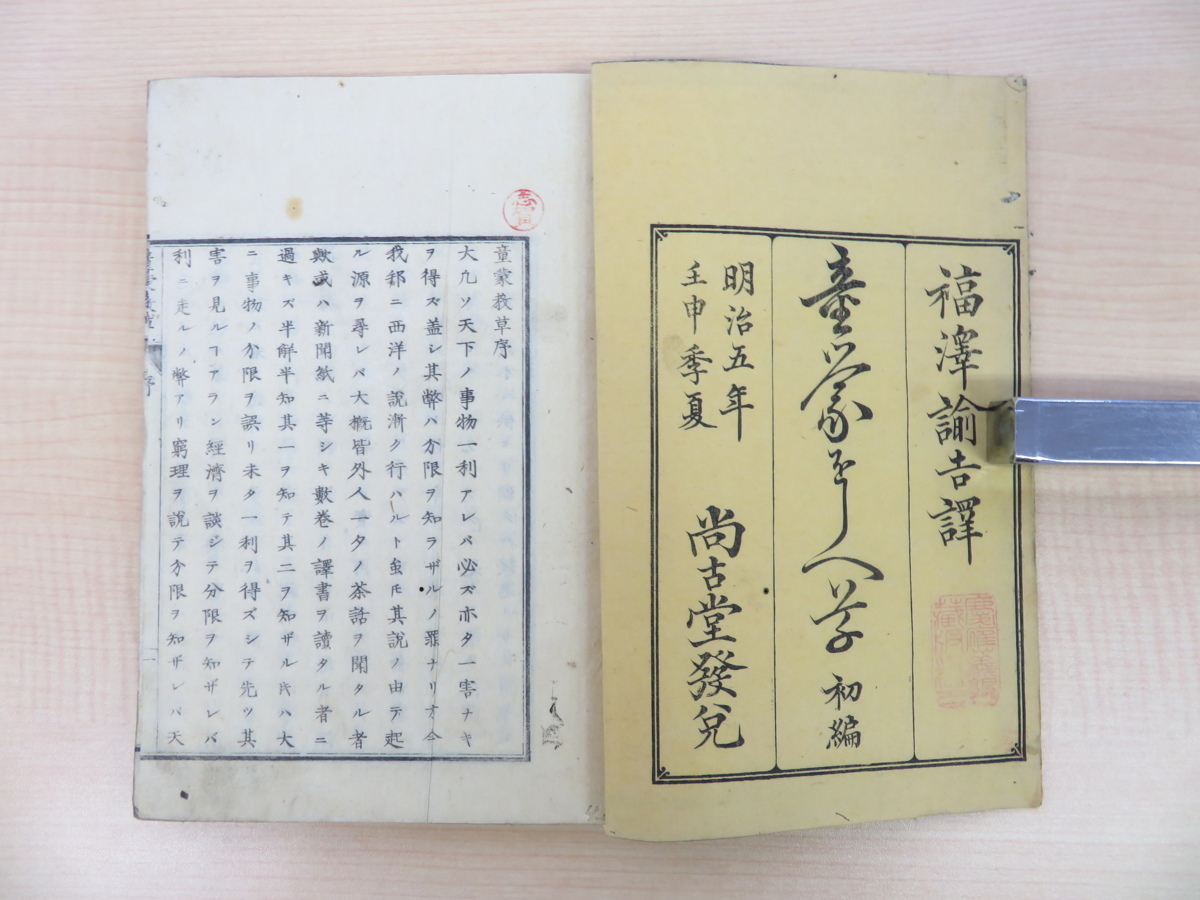 福澤諭吉譯
童蒙をしへ草 初編
明治五年
壬申季夏
尚古堂發兌
童蒂教草序
大凡ソ天下ノ事物一利アレバ必ズ亦タ一害ナキ
ヲ得ズ蓋シ其弊ハ分限ヲ知ラザルノ罪ナリ方今
我邦ニ西洋ノ說漸ク行ハルト雖𪜈其說ノ由テ起
ル源ヲ尋レバ大概皆外人一夕ノ茶話ヲ聞タル者
歟或ハ新聞紙ニ等シキ數卷ノ譯書ヲ讀タル者ニ
過キズ半解半知其一ヲ知テ其二ヲ知ザル氏ハ大
ニ事物ノ分限ヲ誤リ未タ一利ヲ得ズシテ先ツ其
害ヲ見ルヿアラン經濟ヲ談シテ分限ヲ知ザレバ
利ニ走ルノ弊アリ窮理ヲ說テ分限ヲ知ザレバ天